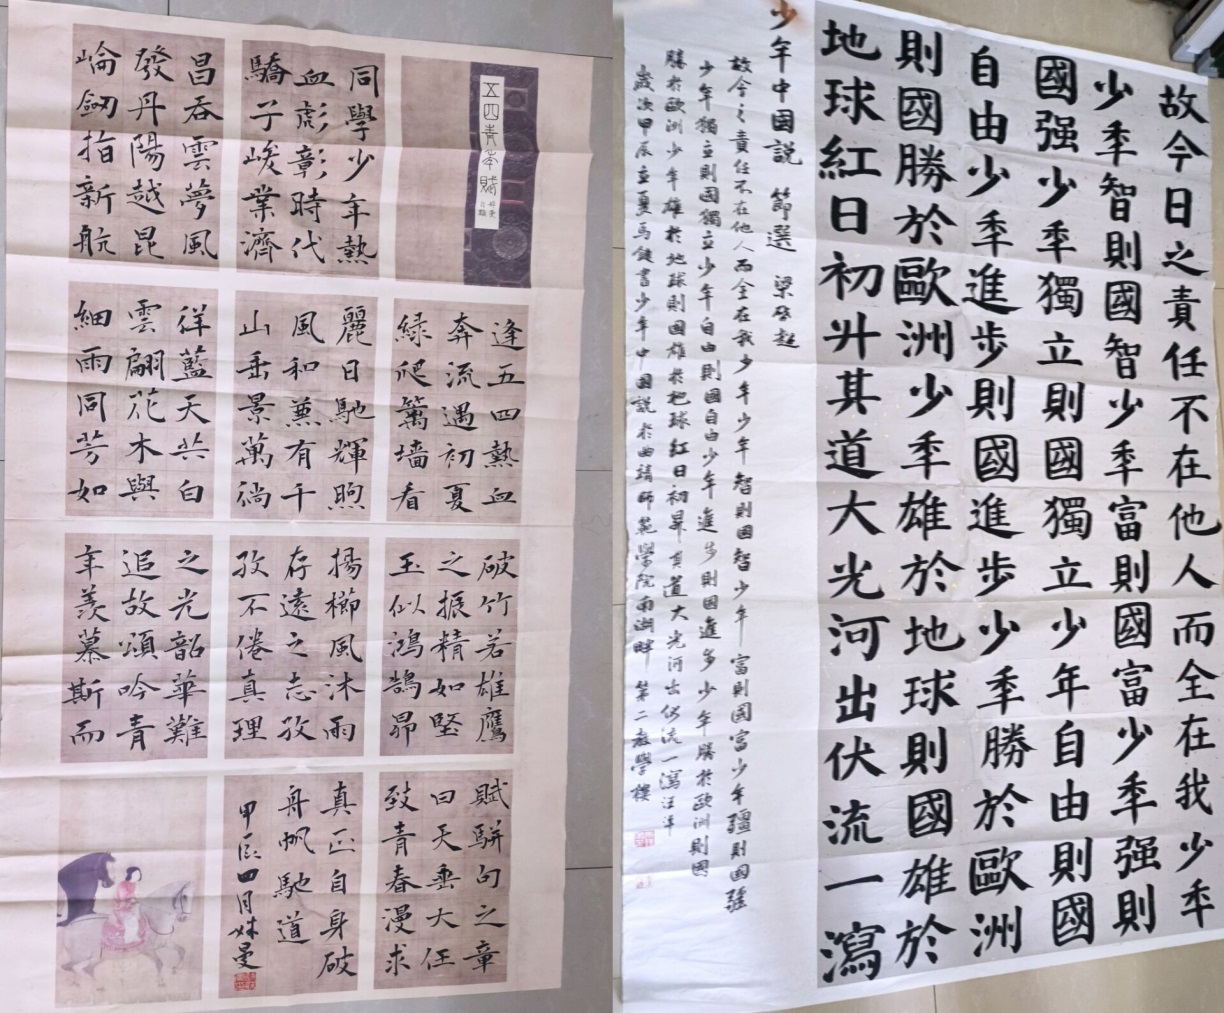 五四青年賦
同學少年熱
血彪彰時代
驕子峻業濟
昌吞雲夢風
發丹陽越昆
崘劒指新航
逢五四熱血
奔流遇初夏
緑爬籬墻看
麗日馳輝煦
風和蕙有千
山垂景萬徜
徉藍天共白
雲翩花木與
細雨同芳如
破竹若雄鷹
之振精如堅
玉似鴻鵠昂
揚櫛風沐雨
存遠之志孜
孜不倦真理
之光韶華難
追故頌吟青
年羨慕斯而
賦駢句之章
曰天垂大任
致青春漫求
真正自身破
舟帆馳道
甲辰四月姝曼
故今日之責任不在他人而全在我少年
少年智則國智少年富則國富少年强則
國强少年獨立則國獨立少年自由則國
自由少年進步則國進步少年勝於歐洲
則國勝於歐洲少年雄於地球則國雄於
地球紅日初升其道大光河出伏流一瀉
少年中国説 節選 梁啓超
故今之責任不在他人而全在我少年少年智則国智少年富則国富少年彊則国強
少年獨立則国獨立少年自由則国自由少年進步則国進步少年勝於欧洲則国
勝於欧洲少年雄於地球則国雄於地球紅日初昇其道大光河出伏流一瀉汪洋
歲次甲辰立夏馬鍵書少年中国説於曲靖師範學院南湖畔第二教學樓